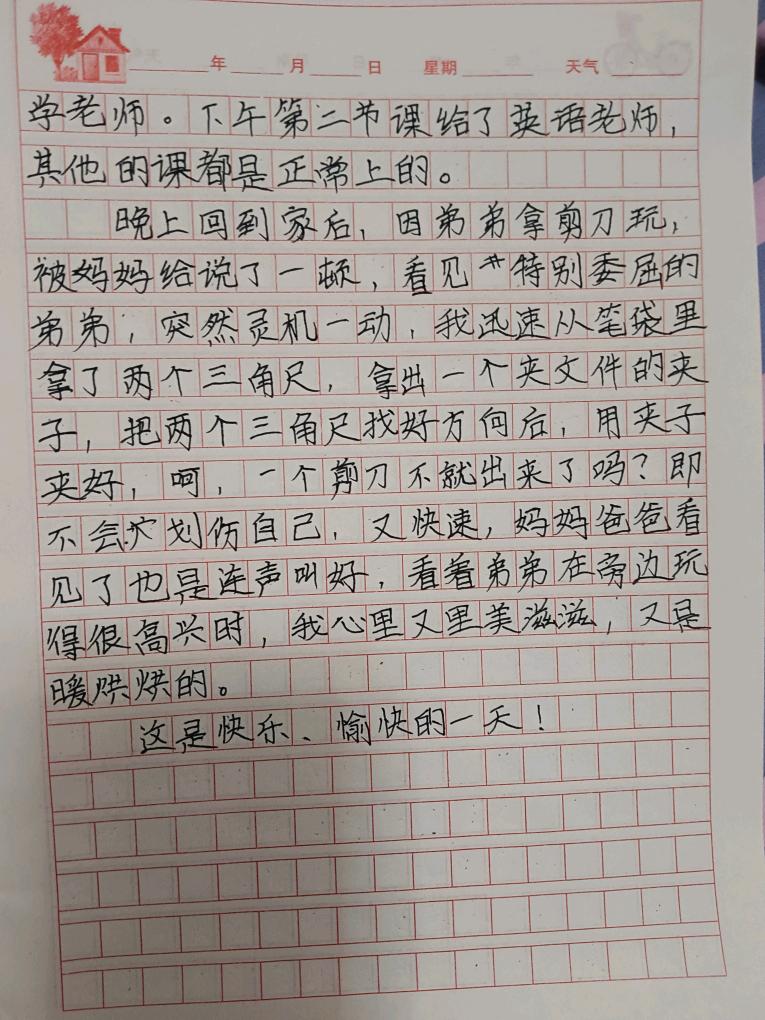 年 月 日 星期 天气
学老师。下午第二节课给了英语老师，
其他的课都是正常上的。
晚上回到家后，因弟弟拿剪刀玩，
被妈妈给说了一顿，看见特别委屈的
弟弟，突然灵机一动，我迅速从笔袋里
拿了两个三角尺，拿出一个夹文件的夹
子，把两个三角尺找好方向后，用夹子
夹好，呵，一个剪刀不就出来了吗？即
不会划伤自己，又快速，妈妈爸爸看
见了也是连声叫好，看着弟弟在旁边玩
得很高兴时，我心里又里美滋滋，又是
暖烘烘的。
这是快乐、愉快的一天！